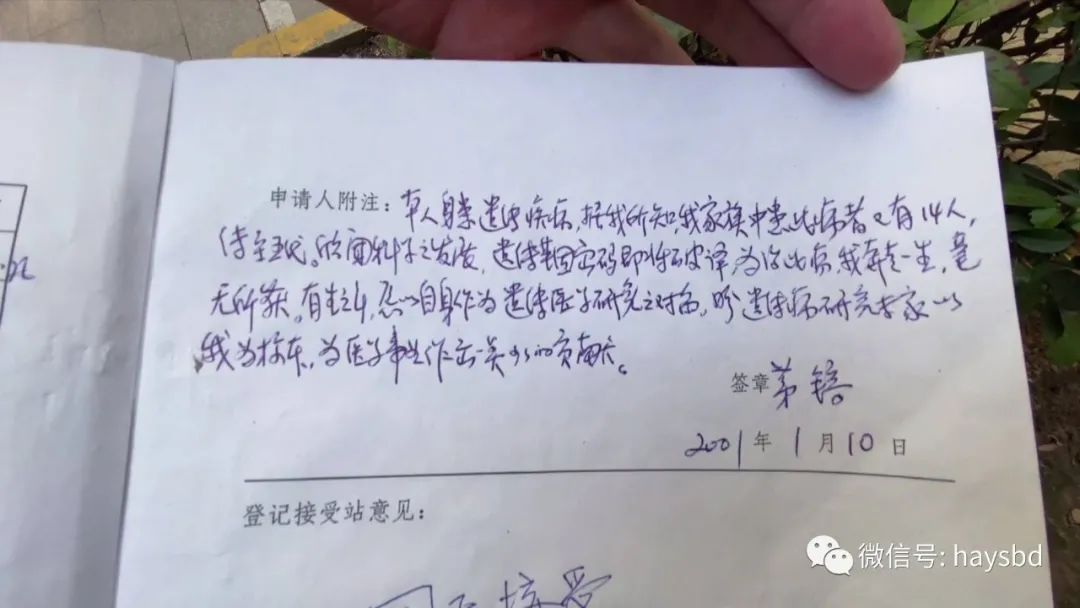 申请人附注：本人身患遗传疾病，据我所知，我家族中患此病者已有14人，
传至五代。欣闻科学之发展，遗传基因密码即将破译，为治此病，我奔走一生，毫
无所获。有生之年，愿以自身作为遗传医学研究之对象，盼遗传病研究专家以
我为标本，为医学事业作出一点贡献。
签章 茅镕
2001年1月10日
登记接受站意见：
接受
微信号: haysbd